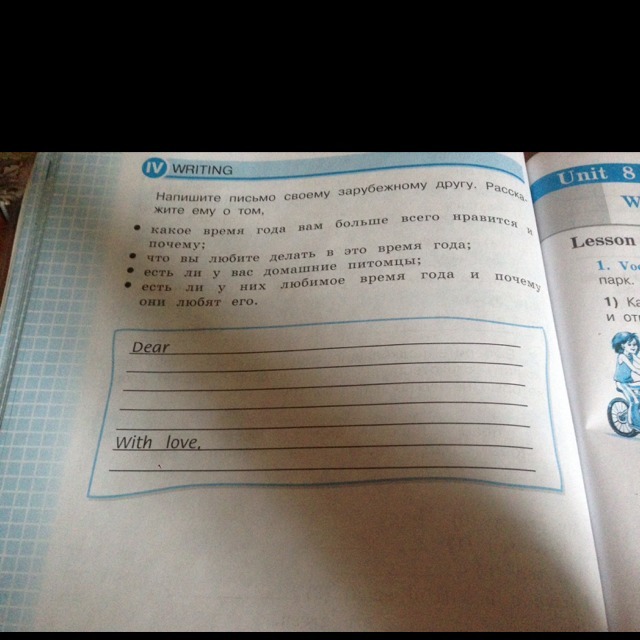 IV WRITING
Напишите письмо своему зарубежному другу. Расска-
жите ему о том,
• какое время года вам больше всего нравится и
почему;
• что вы любите делать в это время года;
• есть ли у вас домашние питомцы;
• есть ли у них любимое время года и почему
они любят его.
Dear
With love,
Unit 8
W
Lesson
1. Voc
парк.
1) Ка
и от